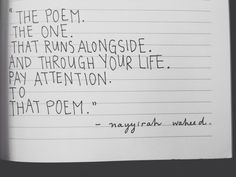 "THE POEM.
THE ONE.
THAT RUNS ALONGSIDE.
AND THROUGH YOUR LIFE.
PAY ATTENTION.
TO
THAT POEM."
- nayyirah waheed.